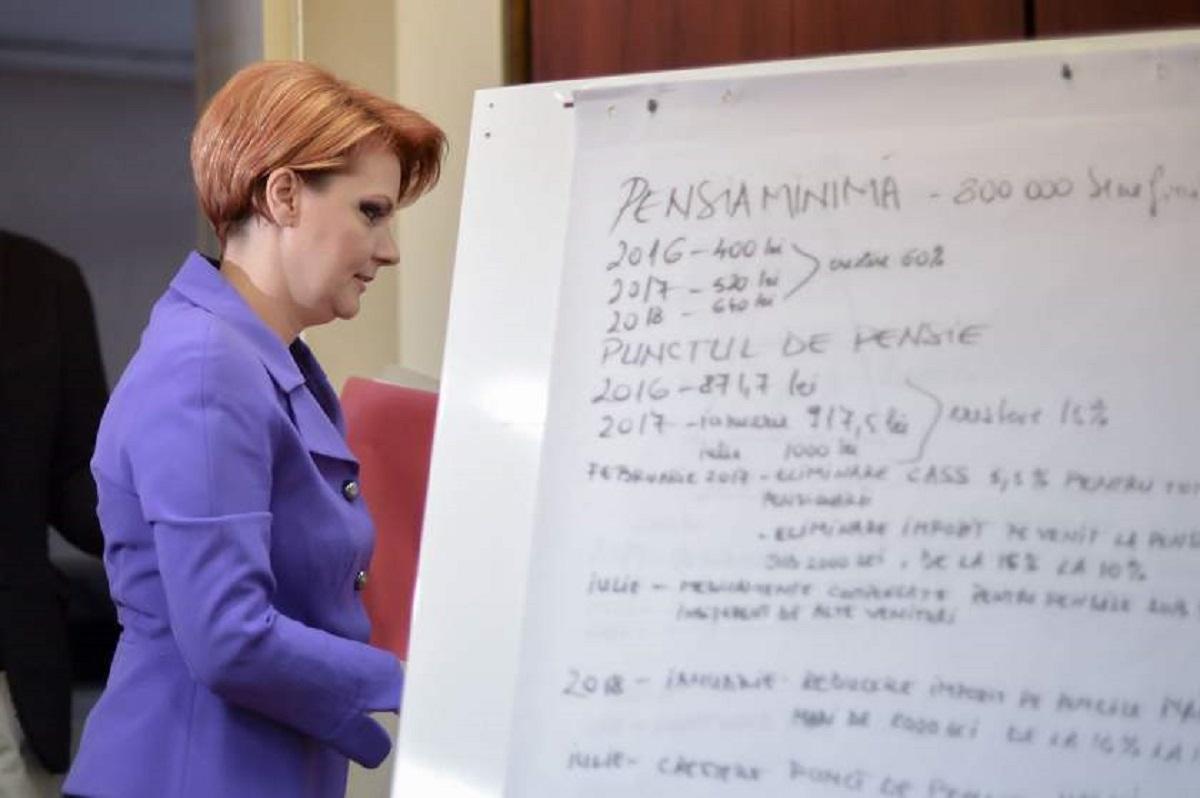 PENSIA MINIMĂ - 800 000
2016 - 400 lei
2017 - 520 lei
2018 - 640 lei
creștere 60%
PUNCTUL DE PENSIE
2016 - 871,7 lei
2017 - ianuarie 917,5 lei
iulie 1000 lei
creștere 15%
FEBRUARIE 2017 - ELIMINARE CASS 5,5% PENTRU
PENSIONARII
- ELIMINARE IMPOZIT PE VENIT LA
SUB 2000 LEI, DE LA 16% LA 10%
IULIE - MEDICAMENTE COMPENSATE PENTRU PENSIILE SUB
INDIFERENT DE ALTE VENITURI
2018 - IANUARIE REDUCERE IMPOZIT PE PENSIILE MAI
MARI DE 2000 LEI DE LA 16% LA
IULIE - CREȘTERE PUNCT DE